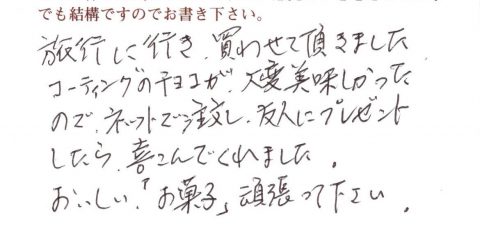 でも結構ですのでお書き下さい。
旅行に行き、買わせて頂きました
コーティングのチョコが、大変美味しかった
ので、ネットで注文し、友人にプレゼント
したら、喜こんでくれました。
おいしい、「お菓子」頑張って下さい。